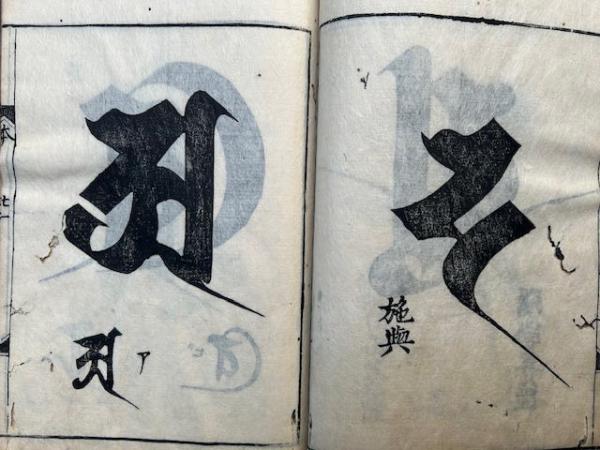 𑖟
施與
𑖀
𑖀 ア